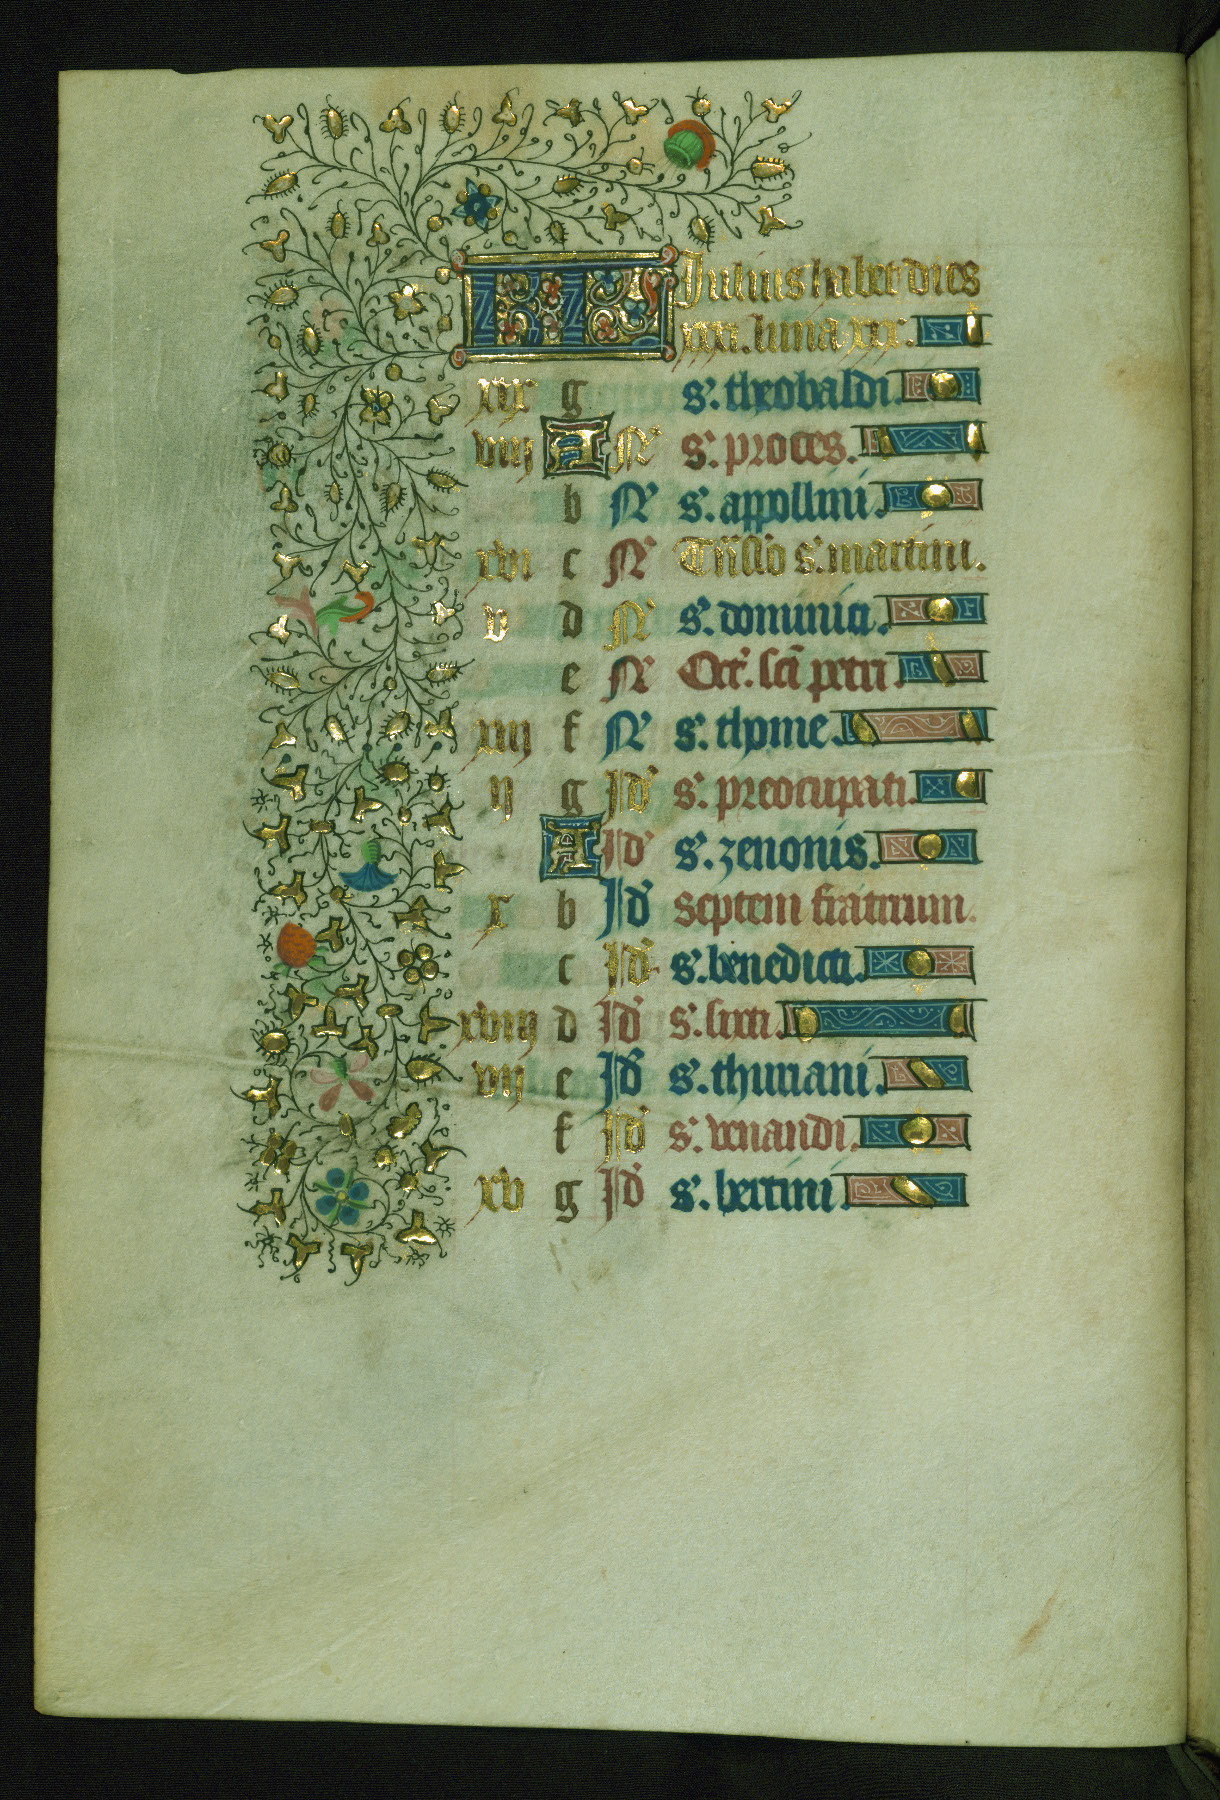 KL Julius habet dies
xxxi. luna xxx.
xix g s'. theobaldi.
viij A N' s'. proces.
b N' s'. appollini.
xvi c N' s'. martini.
v d N' s'. dominici.
e N' Oct'. sci petri.
xiij f N' s'. thome.
ij g Id' s'. preocupati.
A Id' s'. zenonis.
x b Id' septem fratrum.
c Id' s'. benedicti.
xviij d Id' s'. sixti.
vij e Id' s'. thuriani.
f Id' s'. venandi.
xv g Id' s'. bertini.